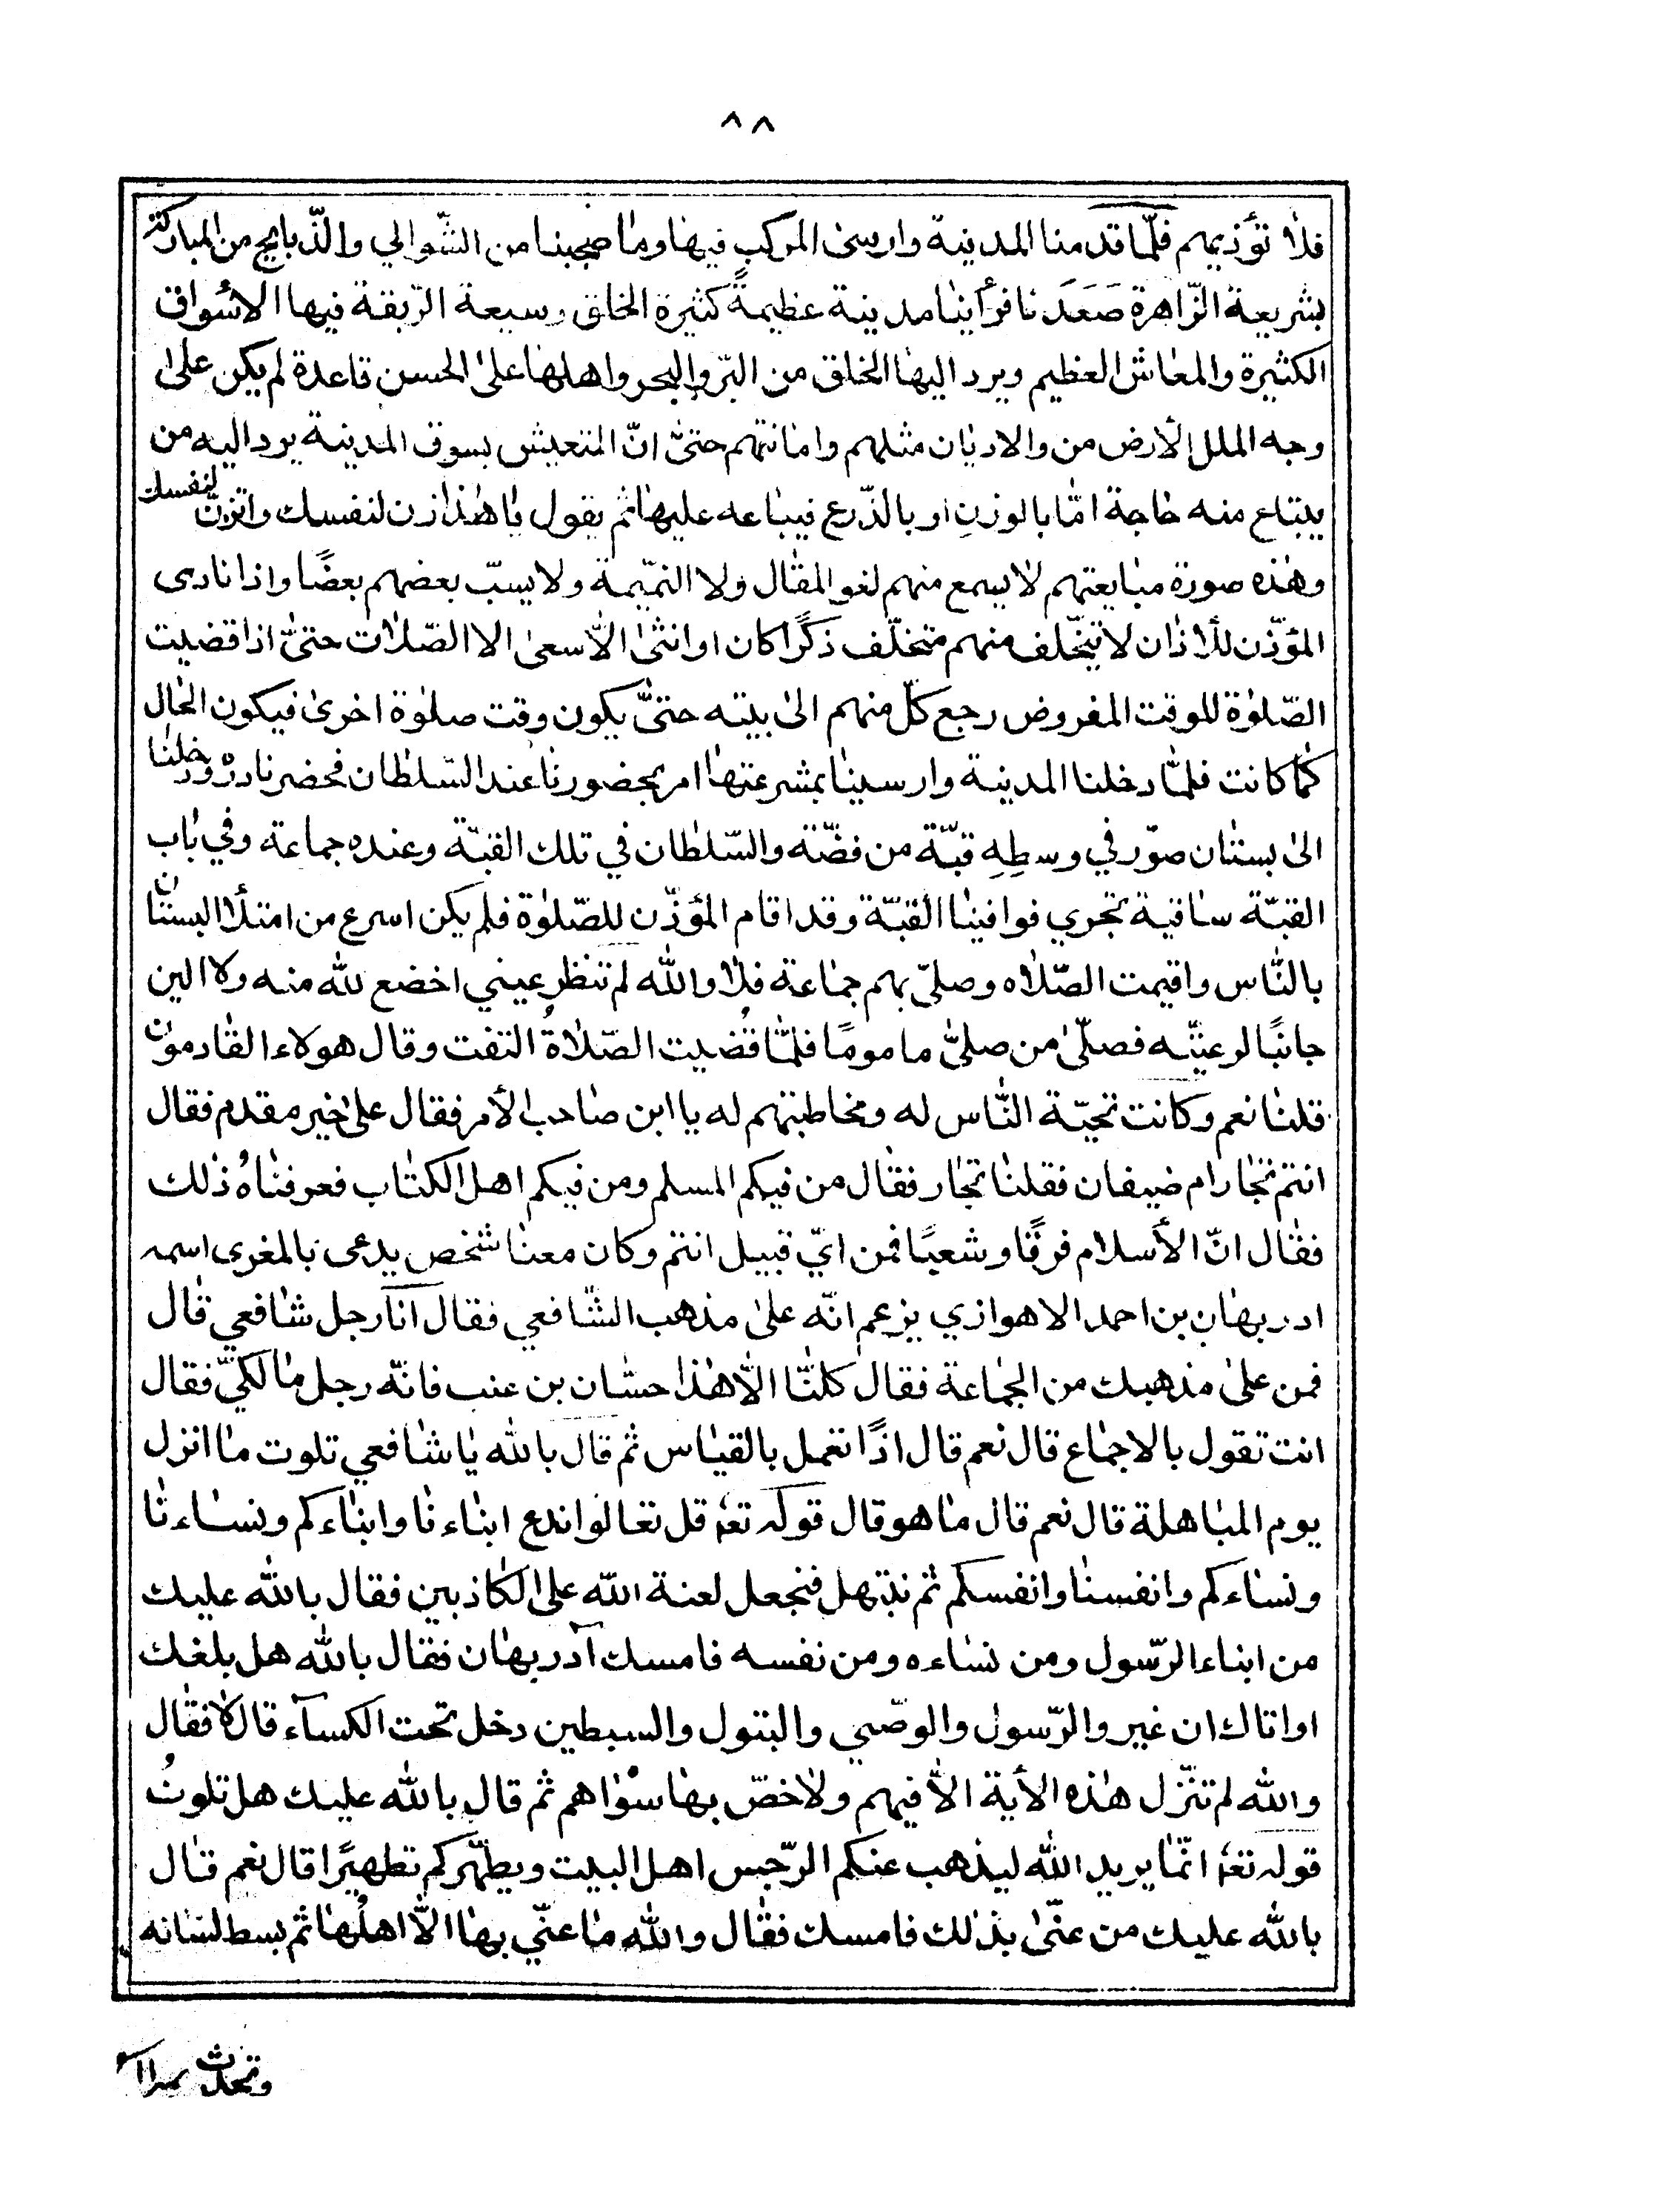 ٨٨
فلا تؤذيهم فلمّا قدمنا المدينة وارسى المركب فيها وما صحبنا من الشّوالي والذّبابيج من المباركة
بشريعة الزّاهرة صَعَدَنا فرأينا مدينة عظيمةً كثيرة الخلق وسيعة الرّبقة فيها الاسُواق
الكثيرة والمعاش العظيم ويرد اليها الخلق من البرّ والبحر واهلها على الحسن قاعدة لم يكن على
وجه الملل الأرض من والاديان مثلهم وامانتهم حتىّ انّ المتعيش بسوق المدينة يرد اليه من
يبتاع منه حاجة امّا بالوزنِ او بالذّرع فيباعه عليها ثم يقول يا هذا زن لنفسك واتزنّ لنفسك
وهذه صورة مبايعتهم لا يسمع منهم لغو المقال ولا النمّيمة ولا يسبّ بعضهم بعضًا واذا نادى
المؤذّن للأذان لا يتخّلف منهم متخلّف ذكرًا كان او انثى الاّ سعى الا الصّلات حتىّ اذا قضيت
الصّلوة للوقت المفروض رجع كلّ منهم الى بيته حتىّ يكون وقت صلوة اخرى فيكون الحال
كما كانت فلمّا دخلنا المدينة وارسينا بمشرعتها امر بحضورنا عند السّلطان فحضرنا دره ودخلنا
الى بستان صوّر في وسطِهِ قبّة من فضّة والسّلطان في تلك القبّة وعنده جماعة وفي باب
القبّة ساقية تجري فوافينا القبّة وقد اقام المؤذّن للصّلوة فلم يكن اسرع من امتلأ البستان
بالنّاس واقيمت الصّلاه وصلىّ بهم جماعة فلا والله لم تنظر عيني اخضع لله منه ولا الين
جانبًا لرعيّته فصلّى من صلىّ ماموما فلمّا قُضيت الصّلاةُ التفت وقال هولاء القادمون
قلنا نعم وكانت تحيّة النّاس له ومخاطبتهم له يا ابن صاحب الأمر فقال على خير مقدم فقال
انتم تجّار ام ضيفان فقلنا تجّار فقال من فيكم المسلم ومن فيكم اهل الكتاب فعرفناهُ ذلك
فقال انّ الأسلام فرقًا وشعبًا فمن ايّ قبيل انتم وكان معنا شخص يدعى بالمغرى اسمه
ادربهان بن احمد الاهوازي يزعم انّه على مذهب الشّافعي فقال انا رجل شافعي قال
فمن على مذهبك من الجماعة فقال كلنّا الاّ هذا حسّان بن عنب فانّه رجل مالكيّ فقال
انت تقول بالاجماع قال نعم قال اذًا تعمل بالقياس ثم قال بالله يا شافعي تلوت ما انزل
يوم المباهلة قال نعم قال ما هو قال قوله تعا قل تعالوا ندع ابناءنا وابناءكم ونساءنا
ونساءكم وانفسنا وانفسكم ثم نبتهل فنجعل لعنة الله على الكاذبين فقال بالله عليك
من ابناء الرّسول ومن نساءه ومن نفسه فامسك آدربهان فقال بالله هل بلغك
او اتاك ان غير والرّسول والوصّي والبتول والسبطين دخل تحت الكسآء قال لا فقال
والله لم تنّزل هذه الأية الاّ فيهم ولا خصّ بها سواهم ثم قال بالله عليك هل تلوتُ
قوله تعا انّما يريد الله ليذهب عنكم الرّجس اهل البيت ويطهّركم تطهيرًا قال نعم قال
بالله عليك من عنّى بذلك فامسك فقال والله ما عنّي بها الاّ اهلُها ثم بسط لسانه
وتحدث